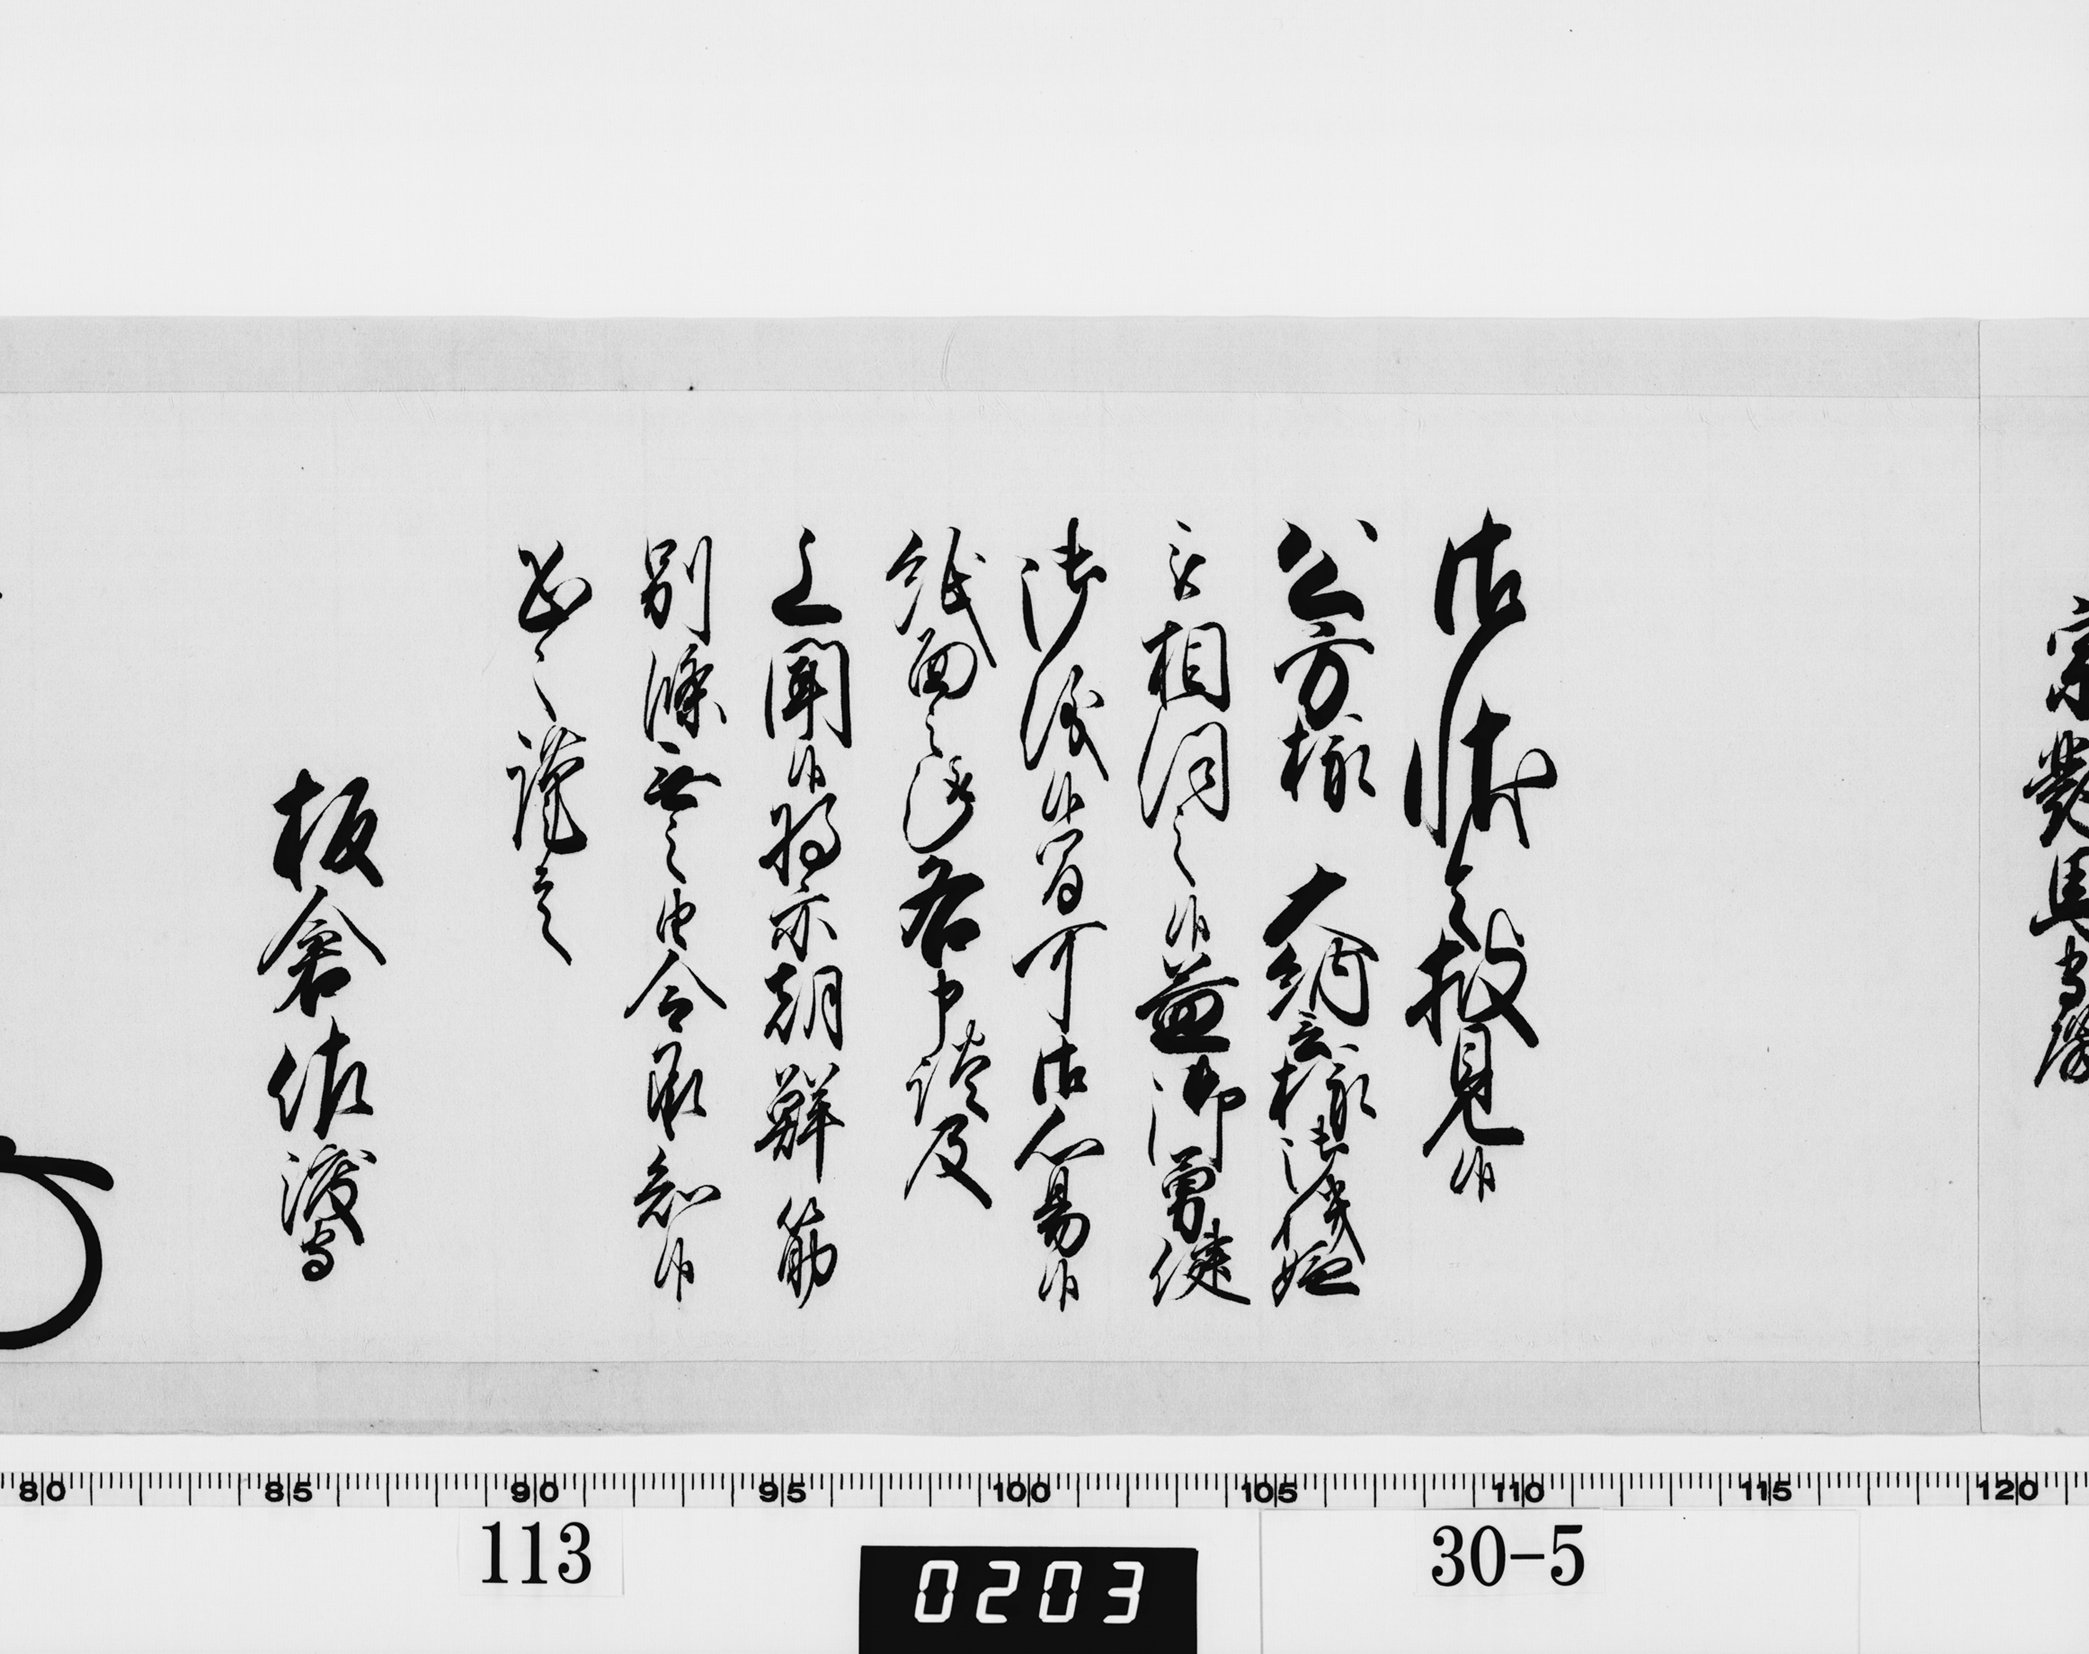 宗對馬守殿
御状令披見候
公方様 大納言様御機嫌
被相伺之候益御勇健
御儀候間可御心易候
紙面之趣各申談及
上聞候将亦朝鮮筋
別條無之由令承知候
恐々謹言
板倉佐渡守
80 85 90 95 100 105 110 115 120
113
0203
30-5